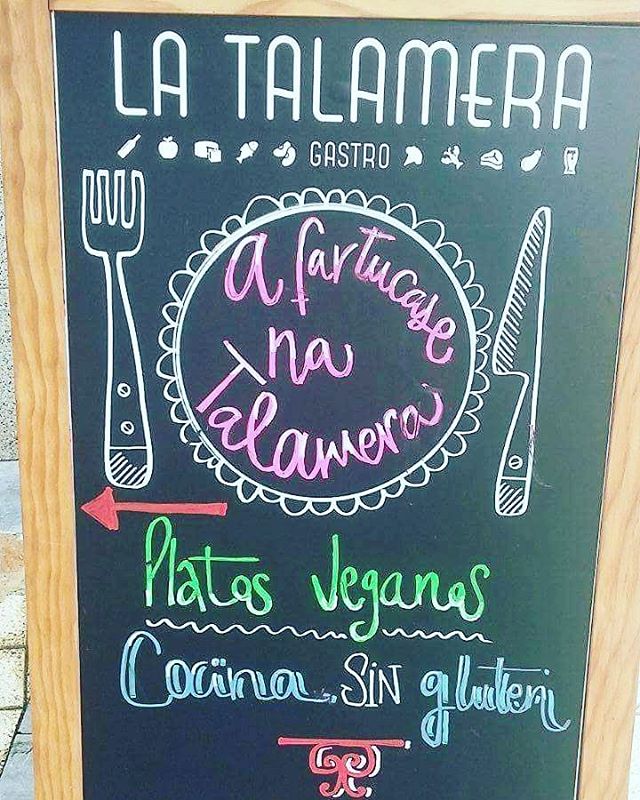 LA TALAMERA
GASTRO
A fartucase
na
Talamera
Platos veganos
Cocina SIN gluten